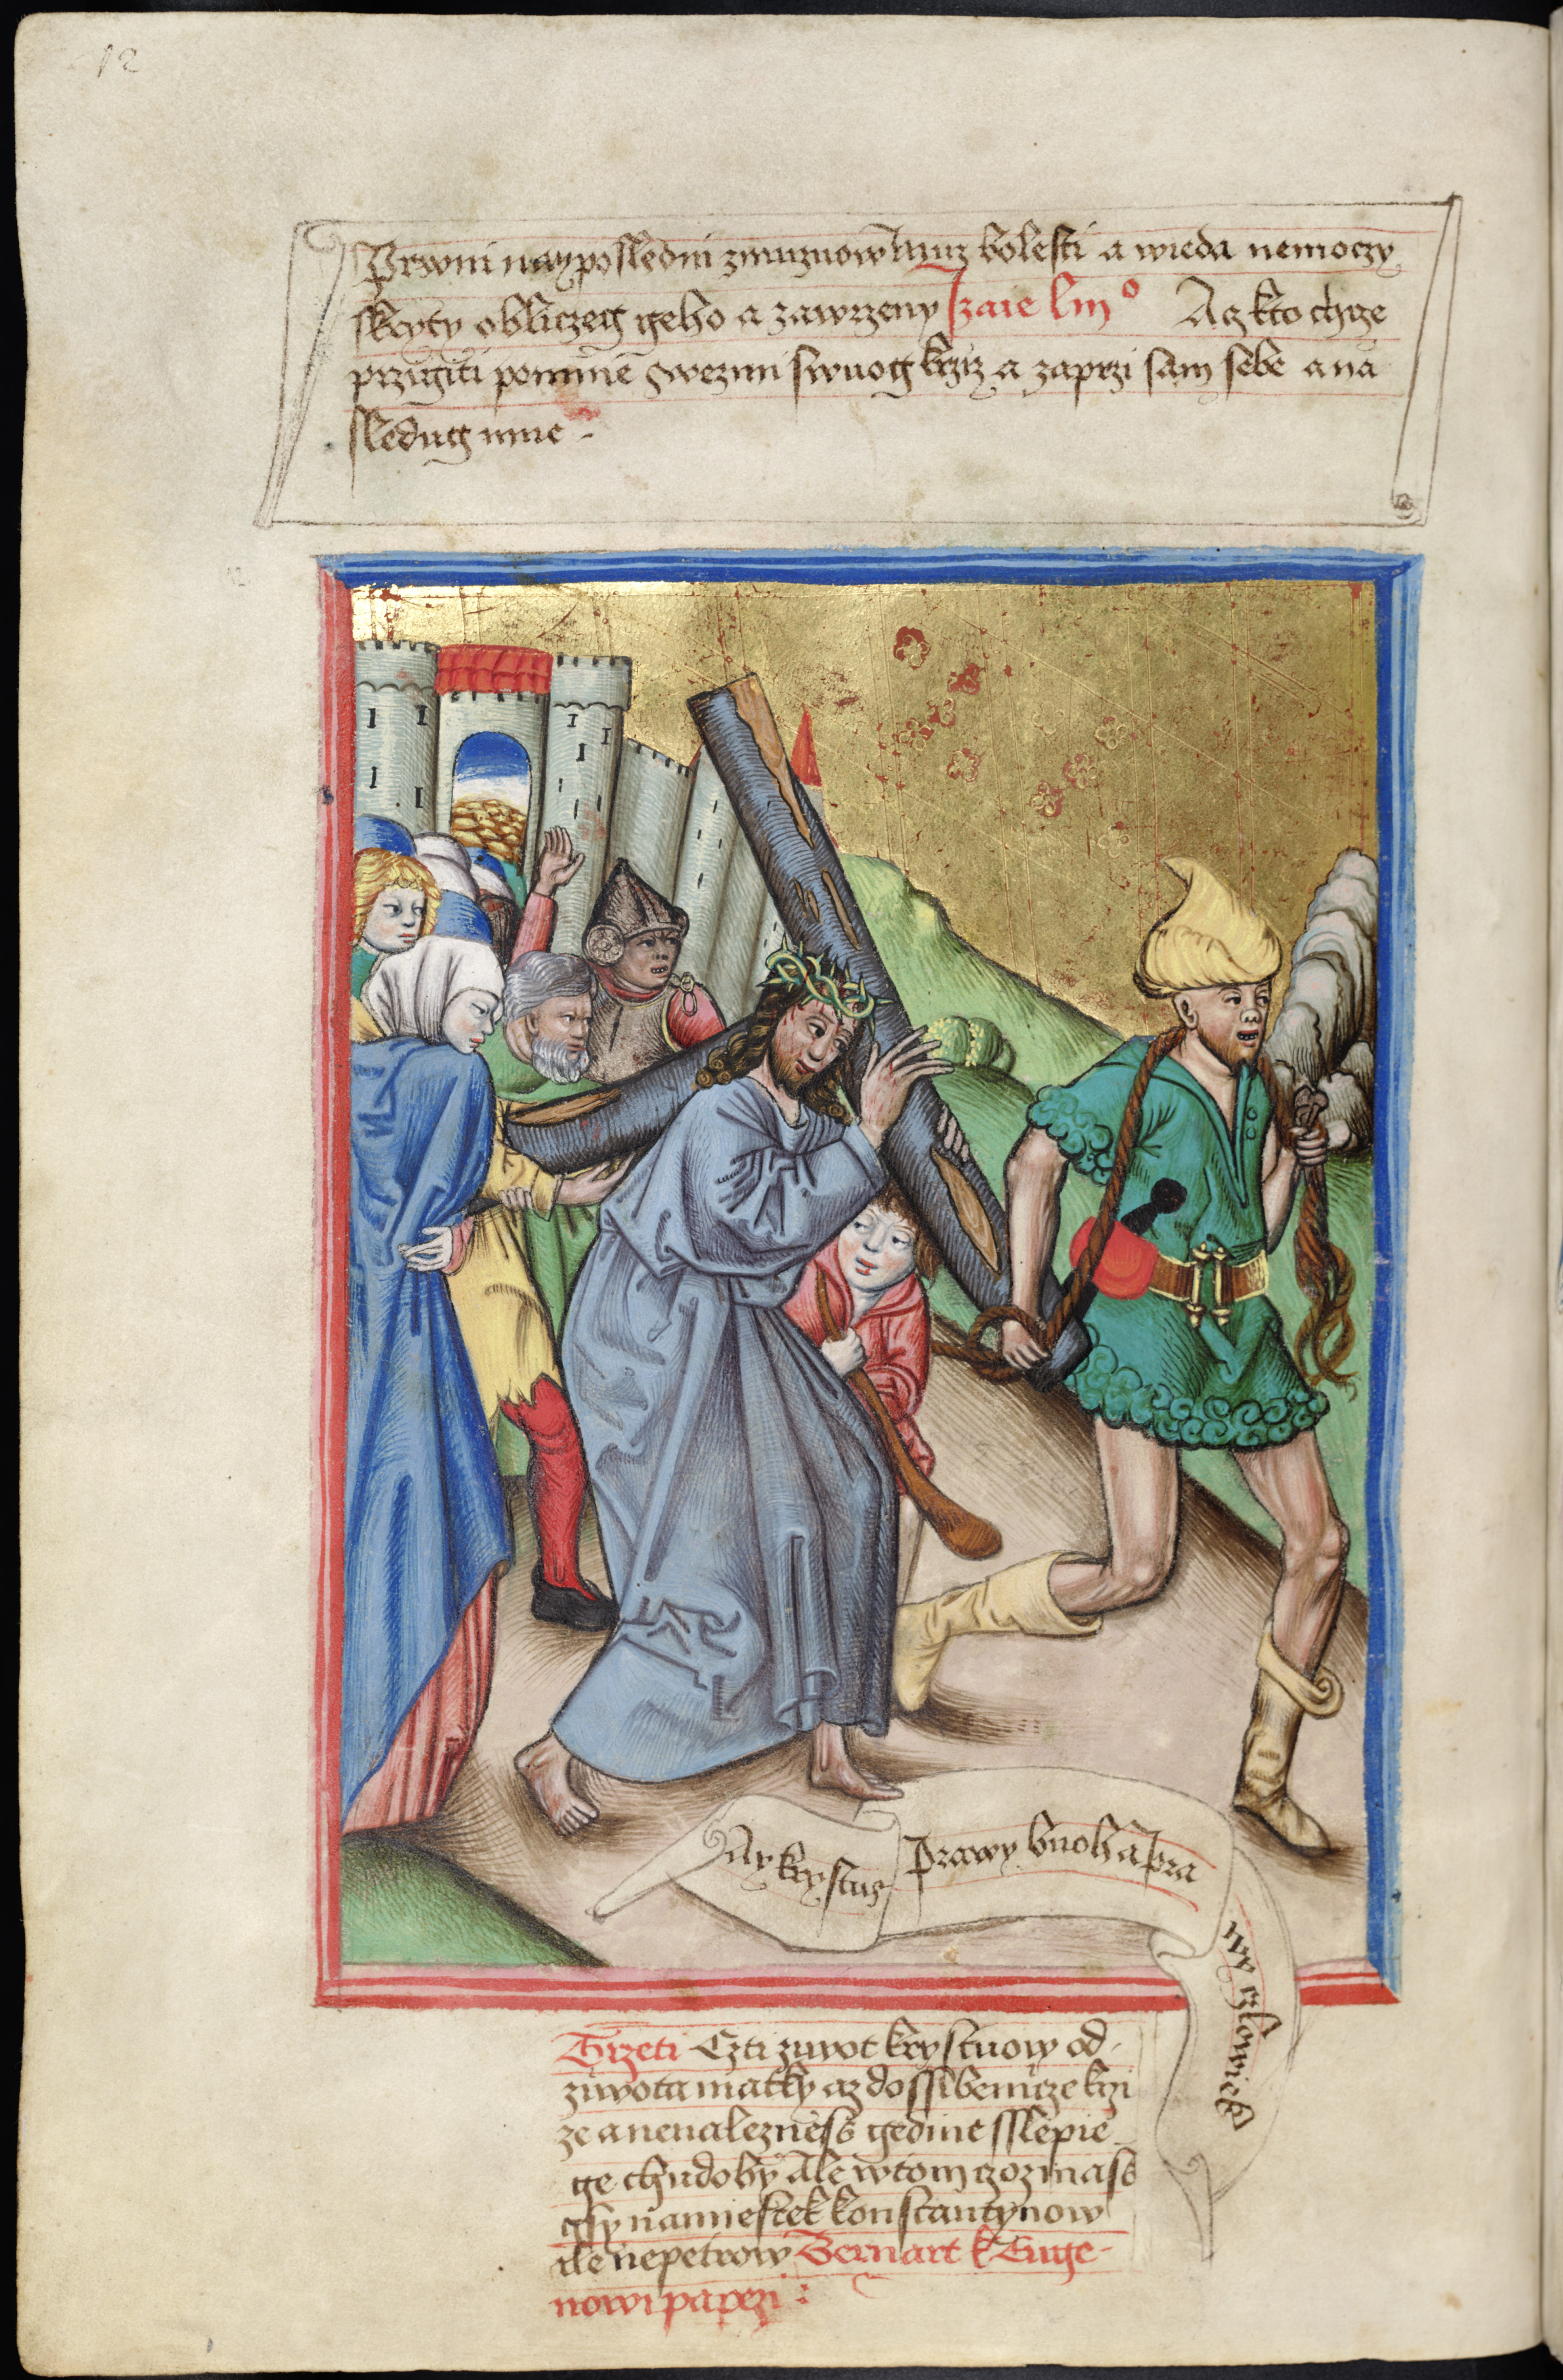 12
Prwni nayposlední zmuzuow muz bolesti a wieda nemoczy
skryty obliczeg geho a zawrzeny Jzaie liii⁰ Ag kto chcze
przigiti pomnie wezmi swuog krziz a zaprzi sam sebe a na
sledug mne
12
Ay krystus Prawy buoh a Pra
wy czlowiek
Trzeti Czti ziwot krystuow od
ziwota matky az do ssibenicze krzi
ze a nenalezness gedine sslepie
ge chudoby Ale w tom czoz mass
gsy namiestek konstantynow
ale ne petrow Bernart k Euge
nowi papezi